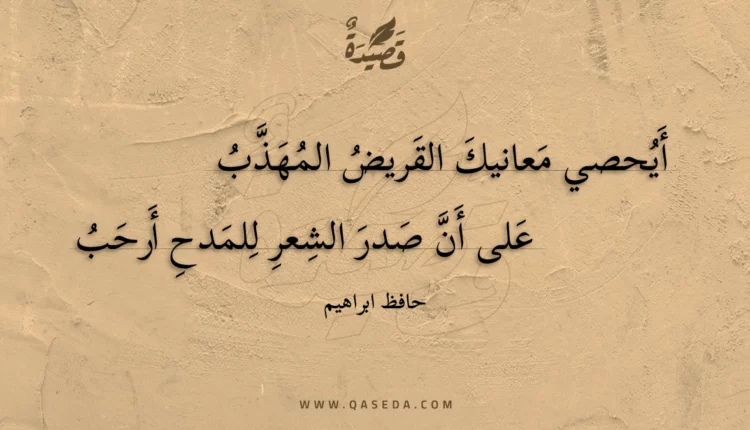 قَصِيْدَةٌ
أَيُحصي مَعانيكَ القَريضُ المُهَذَّبُ
عَلى أَنَّ صَدرَ الشِعرِ لِلمَدحِ أَرحَبُ
حافظ ابراهيم
WWW.QASEDA.COM